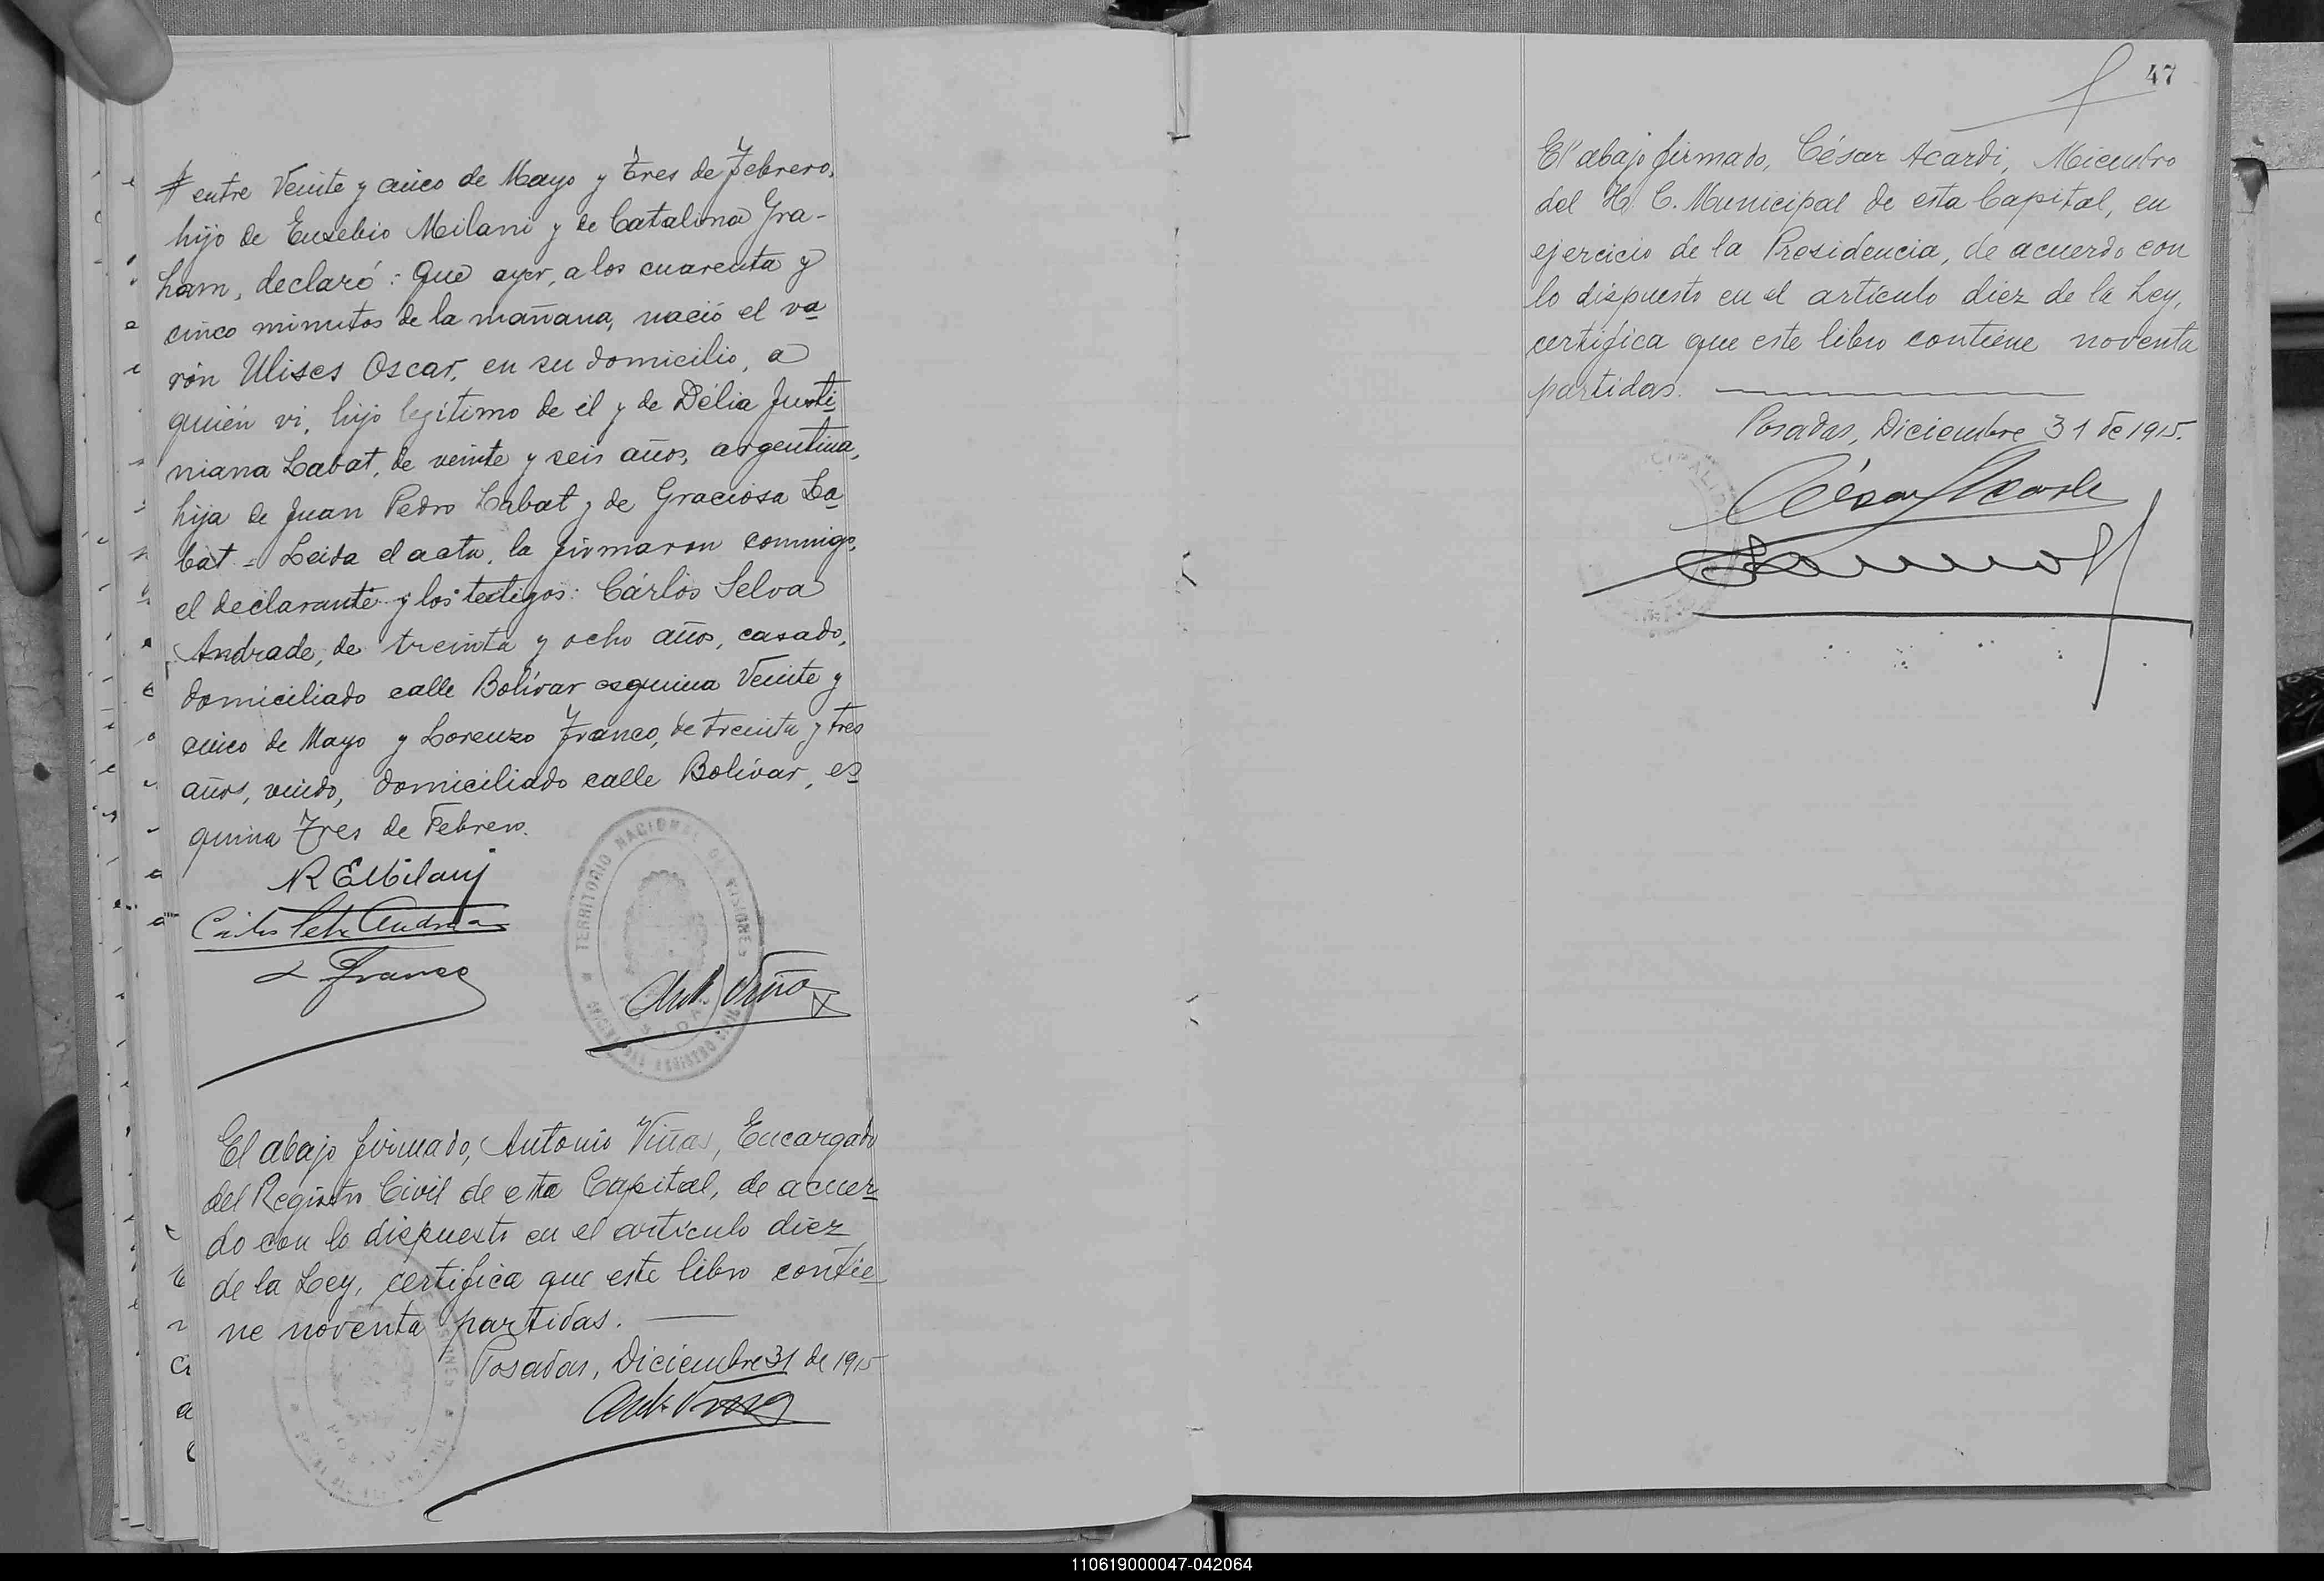 entre Veinte y cinco de Mayo y Tres de Febrero,
hijo de Eusebio Milani y de Catalina Gra-
ham, declaró: Que ayer, a los cuarenta y
cinco minutos de la mañana, nació el va
rón Ulises Oscar, en su domicilio, a
quién vi, hijo legítimo de él y de Délia Justi
niana Labat, de veinte y seis años, argentina,
hija de Juan Pedro Labat y de Graciosa La
bat = Leida el acta, la firmaron conmigo,
el declarante y los testigos: Cárlos Selva
Andrade, de treinta y ocho años, casado,
domiciliado calle Bolívar esquina Veinte y
cinco de Mayo y Lorenzo Franco, de treinta y tres
años, viudo, domiciliado calle Bolívar, es
quina Tres de Febrero.
N R E Milani
L Franco
TERRITORIO NACIONAL DE MISIONES
Ant. Viña
El abajo firmado, Antonio Viñas, Encargado
del Registro Civil de esta Capital, de acuer
do con lo dispuesto en el artículo diez
de la Ley, certifica que este libro contie
ne noventa partidas.
Posadas, Diciembre 31 de 1915
47
El abajo firmado, César Acardi, Miembro
del H. C. Municipal de esta Capital, en
ejercicio de la Presidencia, de acuerdo con
lo dispuesto en el artículo diez de la Ley,
certifica que este libro contiene noventa
partidas.
Posadas, Diciembre 31 de 1915.
110619000047-042064